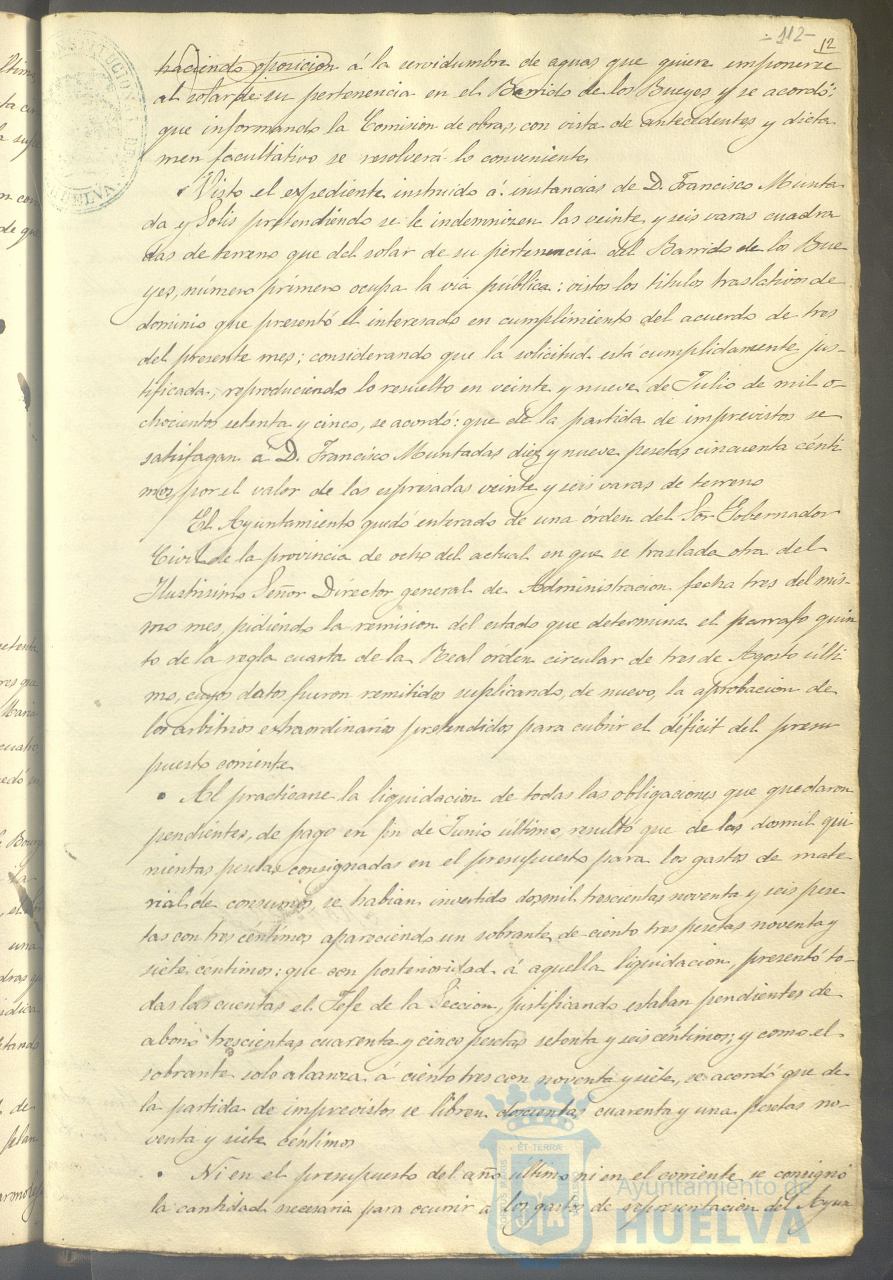 -112-
12
haciendo oposicion á la servidumbre de aguas que quiere imponerse
al solar de su pertenencia en el Barrido de los Bueyes y se acordó:
que informando la Comision de obras, con vista de antecedentes y dicta
men facultativo se resolverá lo conveniente
Visto el expediente instruido á instancias de D. Francisco Munta
da y Solis pretendiendo se le indemnizen las veinte y seis varas cuadra
das de terreno que del solar de su pertenencia del Barrido de los Bue
yes, número primero ocupa la via pública: vistos los titulos traslativos de
dominio que presentó el interesado en cumplimiento del acuerdo de tres
del presente mes; considerando que la solicitud está cumplidamente jus-
tificada; reproduciendo lo resuelto en veinte y nueve de Julio de mil o-
chocientos setenta y cinco, se acordó: que de la partida de imprevistos se
satisfagan á D. Francisco Muntadas diez y nueve pesetas cincuenta cénti
mos por el valor de las espresadas veinte y seis varas de terreno
El Ayuntamiento quedó enterado de una órden del Sor Gobernador
Civil de la provincia de ocho del actual en que se traslada otra del
Ilustrisimo Señor Director general de Administracion fecha tres del mis-
mo mes, pidiendo la remision del estado que determina el parrafo quin
to de la regla cuarta de la Real orden circular de tres de Agosto últi
mo, cuyos datos fueron remitidos suplicando, de nuevo, la aprobacion de
los arbitrios extraordinarios pretendidos para cubrir el déficit del presu
puesto corriente
Al practicarse la liquidacion de todas las obligaciones que quedaron
pendientes de pago en fin de Junio último, resultó que de las dosmil qui
nientas pesetas consignadas en el presupuesto para los gastos de mate-
rial de consumos se habian invertido dosmil trescientas noventa y seis pese
tas con tres céntimos apareciendo un sobrante de ciento tres pesetas noventa y
siete céntimos: que con posterioridad á aquella liquidacion, presentó to-
das las cuentas el Jefe de la Seccion, justificando estaban pendientes de
abono trescientas cuarenta y cinco pesetas setenta y seis céntimos; y como el
sobrante solo alcanza á ciento tres con noventa y siete, se acordó que de
la partida de imprevistos se libren doscientas cuarenta y una pesetas no-
venta y siete céntimos
Ni en el presupuesto del año último ni en el corriente se consignó
la cantidad necesaria para ocurrir a los gastos de representacion del Ayun
ET TERRÆ
Ayuntamiento de
HUELVA